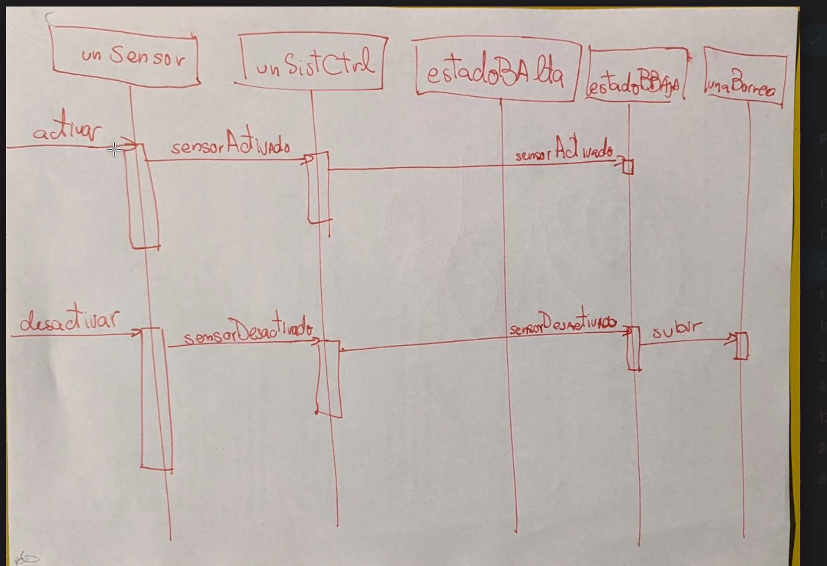 unSensor
unSistCtrl
estadoBAlta
estadoBBaja
unaBarrera
activar
sensorActivado
sensorActivado
desactivar
sensorDesactivado
sensorDesactivado
subir